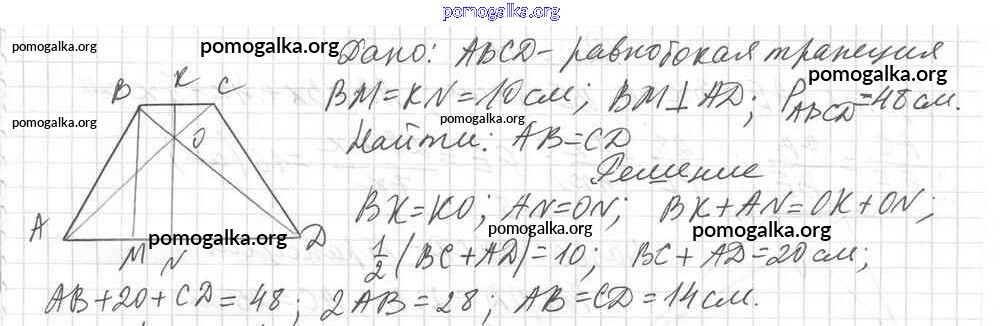 pomogalka.org
pomogalka.org
pomogalka.org
Дано: ABCD - равнобокая трапеция
pomogalka.org
B K C
BM = KN = 10 см; BM ⊥ AD; P_ABCD = 48 см.
pomogalka.org
pomogalka.org
O
Найти: AB = CD
Решение
BK = KO; AN = ON; BK + AN = OK + ON;
A D
pomogalka.org
pomogalka.org
pomogalka.org
M N
1/2 (BC + AD) = 10; BC + AD = 20 см;
AB + 20 + CD = 48; 2AB = 28; AB = CD = 14 см.